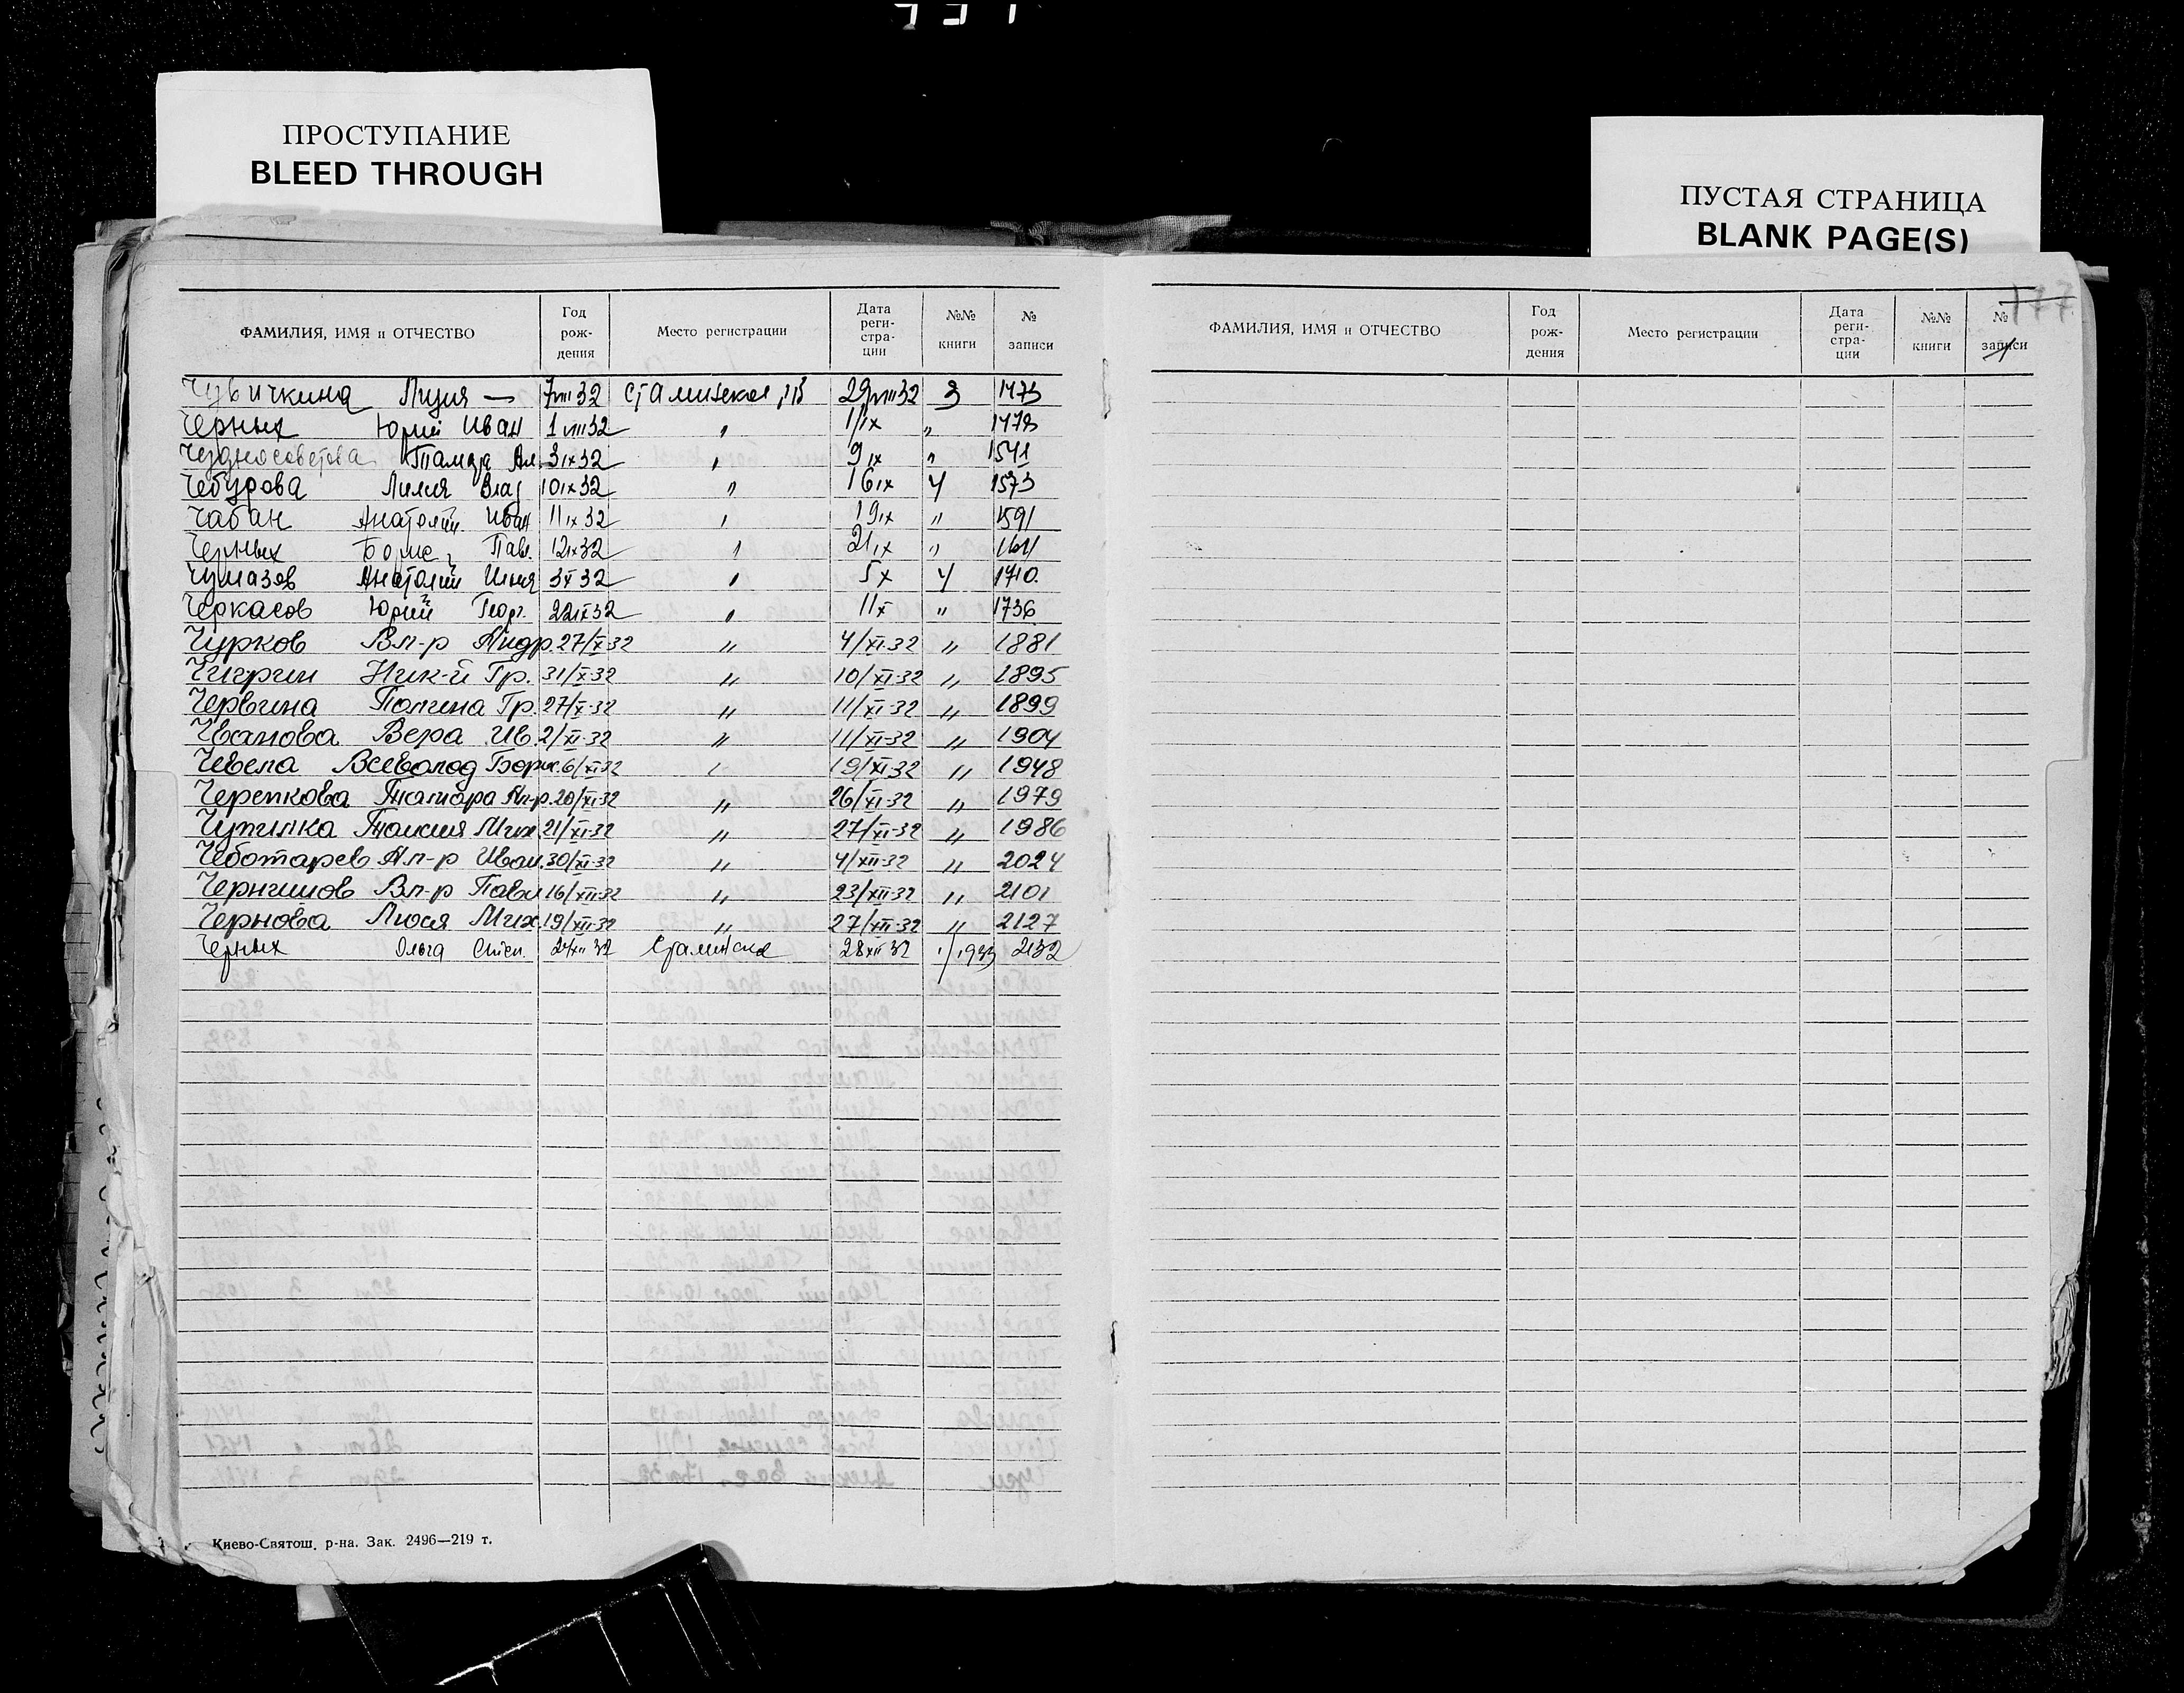 ПРОСТУПАНИЕ
BLEED THROUGH
ПУСТАЯ СТРАНИЦА
BLANK PAGE(S)
177
ФАМИЛИЯ, ИМЯ и ОТЧЕСТВО Год рож- дения Место регистрации Дата реги- стра- ции №№ книги № записи
ФАМИЛИЯ, ИМЯ и ОТЧЕСТВО Год рож- дения Место регистрации Дата реги- стра- ции №№ книги № записи
Чувичкина Лидия — 7 VIII 32 29 VIII 32 3 1473
Черных Юрий Иван 1 VIII 32 " 1/IX " 1478
Чудносоветова Тамара Ал. 3 IX 32 " 9 IX " 1541
Чебурова Лилия Влад 10 IX 32 " 16 IX 4 1573
Чабан Анатолий Иван 11 IX 32 " 19 IX " 1591
Черных Борис Павл. 12 IX 32 " 21 IX "
Чумазов Анатолий Илия 3 X 32 " 5 X 4 1710
Черкасов Юрий Георг. 22 IX 32 " 11 X " 1736
Чурков Вл-р Андр. 27/X-32 " 4/XI-32 " 1881
Чигрин Ник-й Гр. 31/X-32 " 10/XI-32 " 1895
Червина Полина Гр. 27/X-32 " 11/XI-32 " 1899
Чванова Вера Ив. 2/XI-32 " 11/XI-32 " 1904
Чевела Всеволод Борис. 6/XI-32 " 19/XI-32 " 1948
Черепкова Тамара Ал-р. 20/XI-32 " 26/XI-32 " 1979
Чупилка Таисия Мих. 21/XI-32 " 27/XI-32 " 1986
Чеботарев Ал-р Иван. 30/XI-32 " 4/XII-32 " 2024
Чернишов Вл-р Павл 16/XII-32 " 23/XII-32 " 2101
Чернова Люся Мих. 19/XII-32 " 27/XII-32 " 2127
Черных Ольга Степ. 24 XII 32 28 XII 32 1/1933 2132
Киево-Святош. р-на. Зак. 2496—219 т.